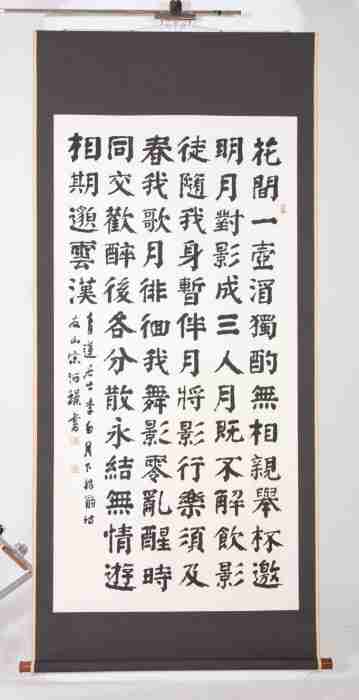 花間一壺酒獨酌無相親舉杯邀
明月對影成三人月既不解飲影
徒隨我身暫伴月將影行樂須及
春我歌月徘徊我舞影零亂醒時
同交歡醉後各分散永結無情遊
相期邈雲漢
青蓮居士李白月下獨酌詩
山宋河書